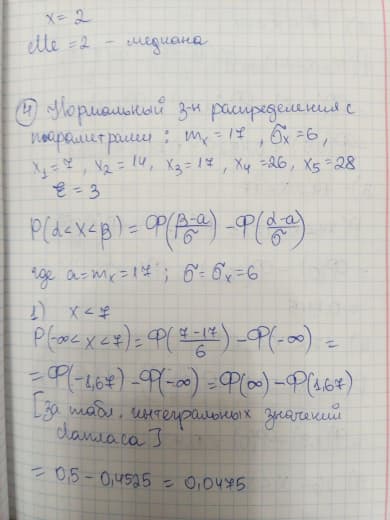 x = 2
Me = 2 - медиана
④ Нормальный з-н распределения с
параметрами: mₓ = 17, σₓ = 6,
x₁ = 7, x₂ = 14, x₃ = 17, x₄ = 26, x₅ = 28
ε = 3
P(α < X < β) = Ф((β-a)/σ) - Ф((α-a)/σ)
где a = mₓ = 17; σ = σₓ = 6
1) X < 7
P(-∞ < X < 7) = Ф((7-17)/6) - Ф(-∞) =
= Ф(-1,67) - Ф(-∞) = Ф(∞) - Ф(1,67)
[за табл. интегральных значений
Лапласа]
= 0,5 - 0,4525 = 0,0475